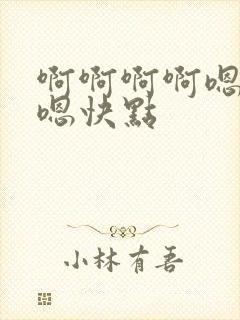 啊啊啊啊嗯
嗯快點
小林有吾